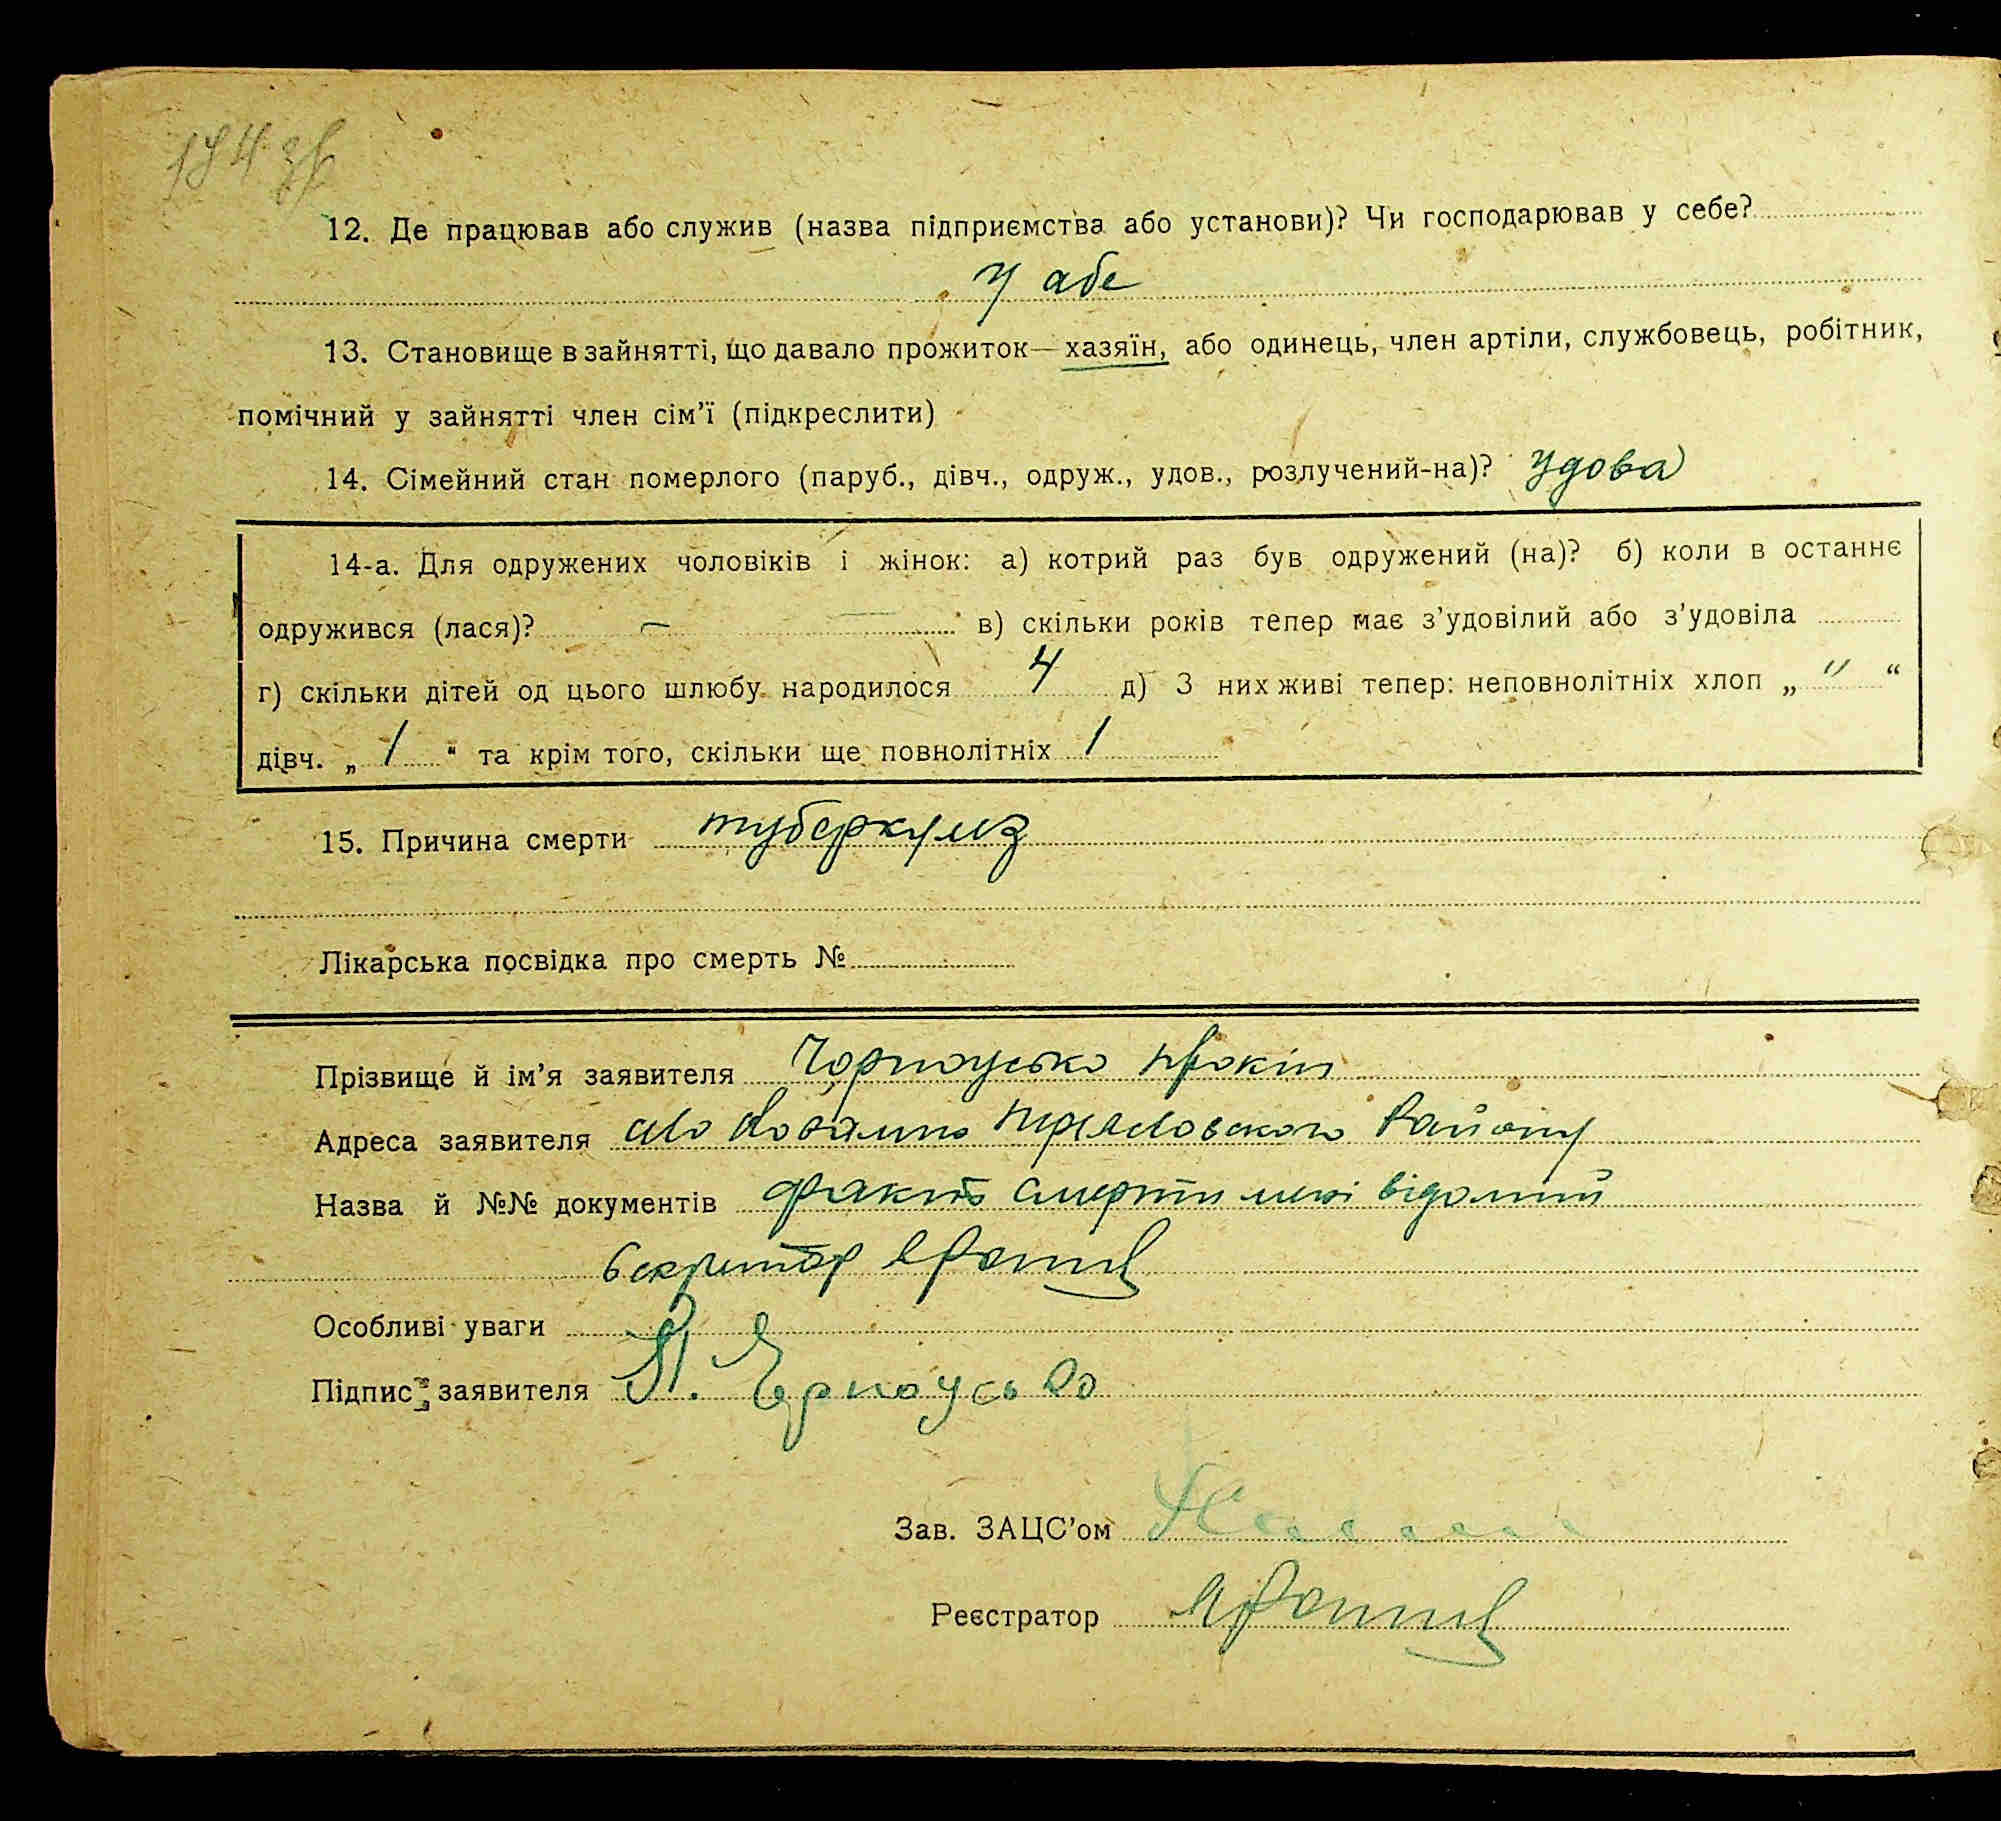 184 зв
12. Де працював або служив (назва підприємства або установи)? Чи господарював у себе?
у себе
13. Становище в зайнятті, що давало прожиток—хазяїн, або одинець, член артіли, службовець, робітник,
помічний у зайнятті член сім’ї (підкреслити)
14. Сімейний стан померлого (паруб., дівч., одруж., удов., розлучений-на)? Удова
14-а. Для одружених чоловіків і жінок: а) котрий раз був одружений (на)? б) коли в останнє
одружився (лася)? — в) скільки років тепер має з’удовілий або з’удовіла
г) скільки дітей од цього шлюбу народилося 4 д) З них живі тепер: неповнолітніх хлоп „ " “
дівч. „ 1 “ та крім того, скільки ще повнолітніх 1
15. Причина смерти туберкульз
Лікарська посвідка про смерть №
Прізвище й ім’я заявителя Чорноусько Прокіп
Адреса заявителя село району
Назва й №№ документів факт смерти мені відомий
Секретар
Особливі уваги
Підпис заявителя П. Чорноусько
Зав. ЗАЦС’ом
Реєстратор